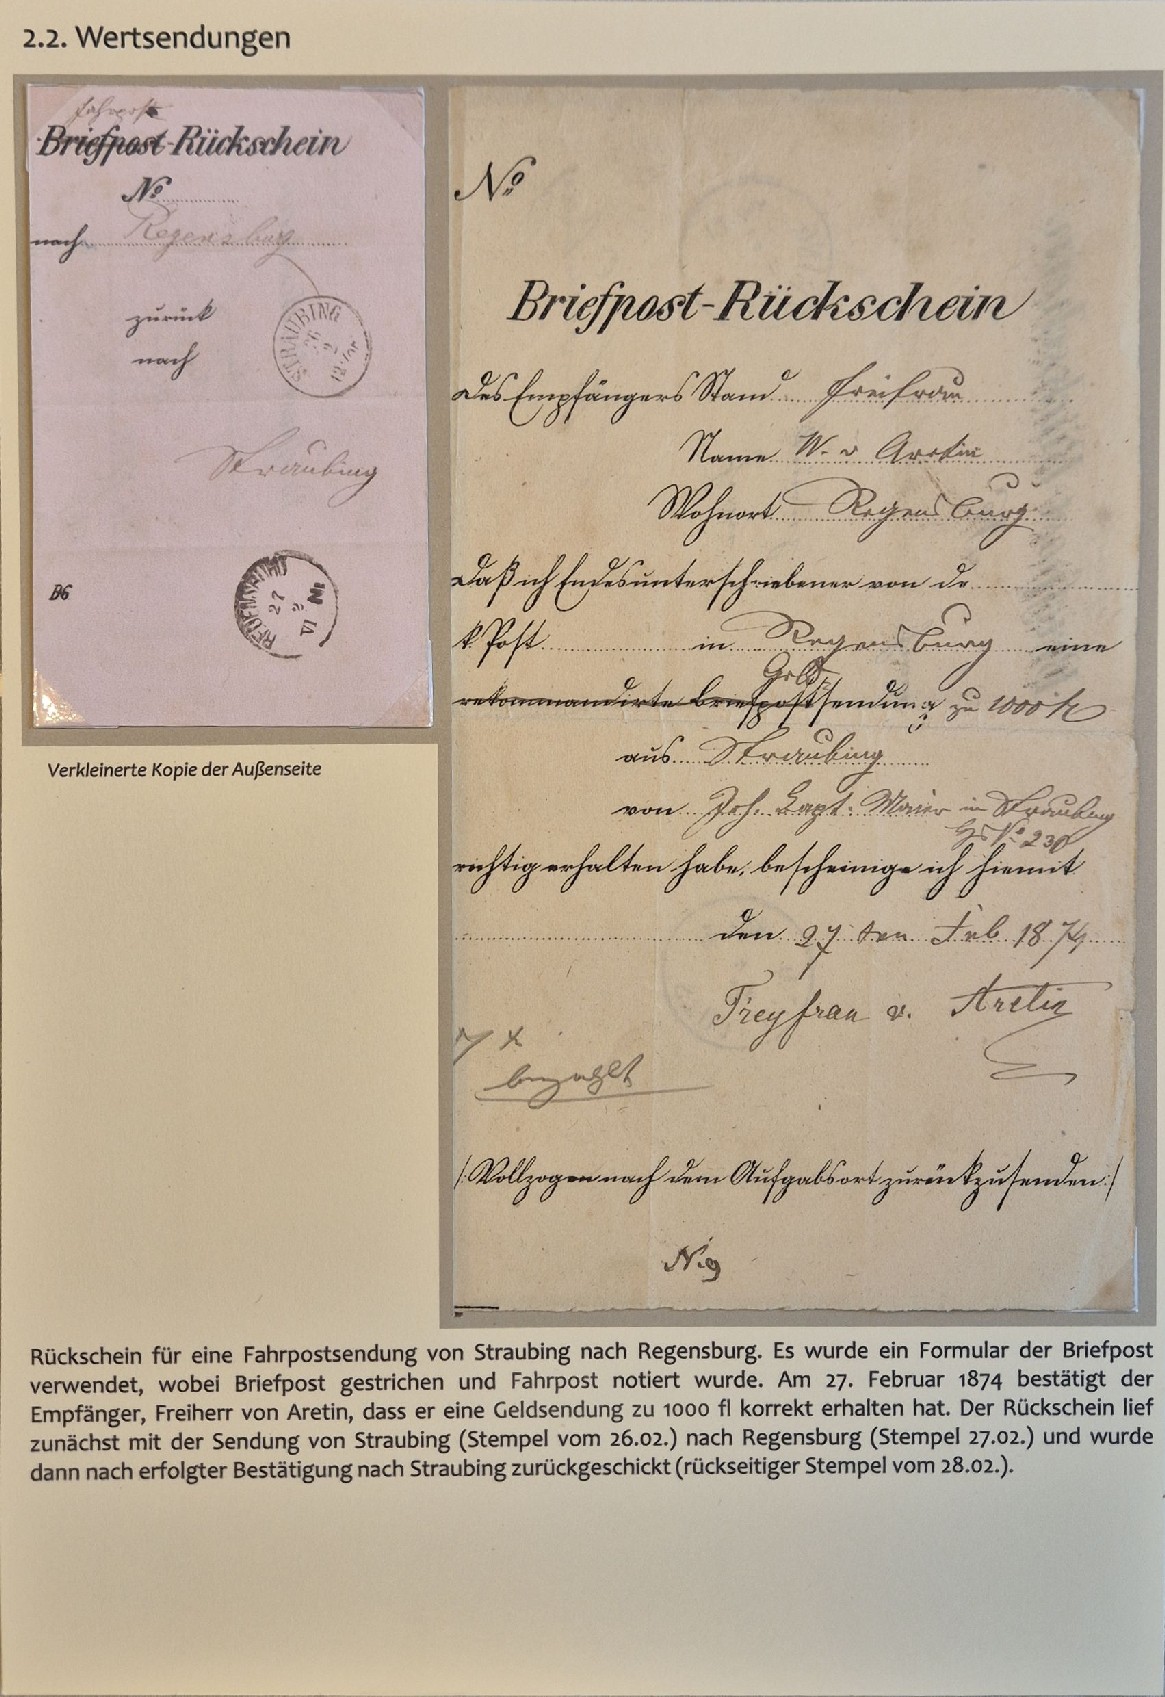 2.2. Wertsendungen
Fahrpost
Briefpost-Rückschein
No
nach Regensburg
zurück
nach
STRAUBING
26
2
12
Straubing
REGENSBURG
27
2
VI
NM
B6
Verkleinerte Kopie der Außenseite
No
Briefpost-Rückschein
Des Empfängers Stand Freifrau
Name W. v Aretin
Wohnort Regensburg
Daß ich Endesunterschriebener von de
k Post in Regensburg eine
Geld
rekommandirte Briefpostsendung zu 1000 fl
aus Straubing
von Joh. Bapt. Maier in Straubing
Hs No 230
richtig erhalten habe, bescheinige ich hiemit.
den 27 ten Feb 1874
Freyfrau v. Aretin
7 x
bezahlt
/: Vollzogen nach dem Aufgabsort zurückzusenden :/
Rückschein für eine Fahrpostsendung von Straubing nach Regensburg. Es wurde ein Formular der Briefpost
verwendet, wobei Briefpost gestrichen und Fahrpost notiert wurde. Am 27. Februar 1874 bestätigt der
Empfänger, Freiherr von Aretin, dass er eine Geldsendung zu 1000 fl korrekt erhalten hat. Der Rückschein lief
zunächst mit der Sendung von Straubing (Stempel vom 26.02.) nach Regensburg (Stempel 27.02.) und wurde
dann nach erfolgter Bestätigung nach Straubing zurückgeschickt (rückseitiger Stempel vom 28.02.).